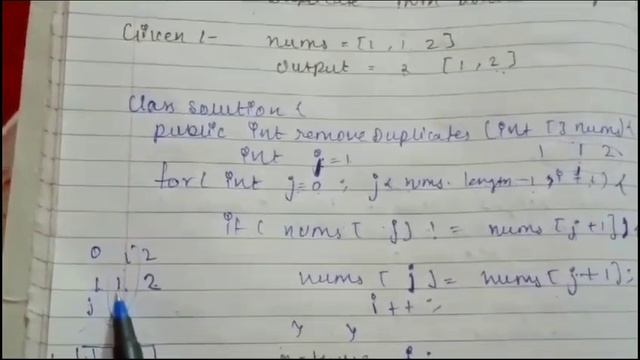 Given :- nums = [1, 1 2]
output = 2 [1, 2]
class solution {
public int removeDuplicates (int [] nums) {
int i = 1
1 1 2
for( int j=0 ; j < nums. length-1 ; j++) {
if ( nums [ j] != nums [j+1])
0 1 2
1 1 2
nums [ j] = nums [j+1];
j
i++;
} }